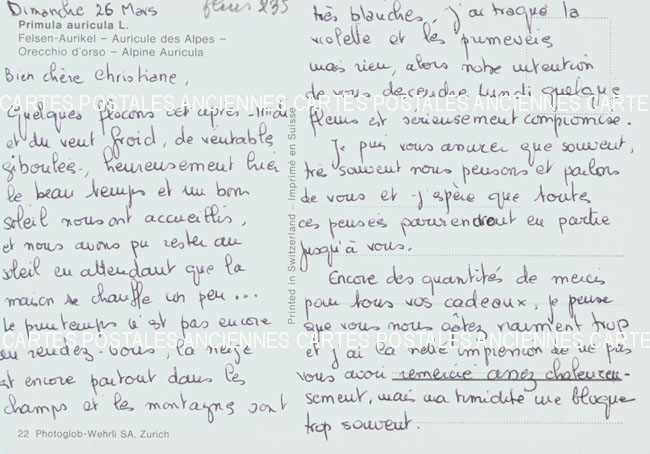 Dimanche 26 Mars
fleurs 235
Primula auricula L.
Felsen-Aurikel – Auricule des Alpes –
Orecchio d'orso – Alpine Auricula
Bien chère Christiane,
Quelques flocons cet après-midi
et du vent froid, de véritables
giboulées, heureusement hier
le beau temps et un bon
soleil nous ont accueillis,
et nous avons pu rester au
soleil en attendant que la
maison se chauffe un peu...
le printemps n'est pas encore
au rendez-vous, la neige
est encore partout dans les
champs et les montagnes sont
22 Photoglob-Wehrli SA, Zurich
Printed in Switzerland – Imprimé en Suisse
très blanches, j'ai traqué la
violette et les primevères
mais rien, alors notre intention
de vous descendre lundi quelque
fleurs est sérieusement compromise.
Je puis vous assurer que souvent,
très souvent nous pensons et parlons
de vous et j'espère que toutes
ces pensées parviendront en partie
jusqu'à vous.
Encore des quantités de mercis
pour tous vos cadeaux, je pense
que vous nous gâtez vraiment trop
et j'ai la nette impression de ne pas
vous avoir remercié assez chaleureu-
sement, mais ma timidité me bloque
trop souvent.
CARTES POSTALES ANCIENNES CARTES POSTALES ANCIENNES CARTES
CARTES POSTALES ANCIENNES CARTES POSTALES ANCIENNES CARTES